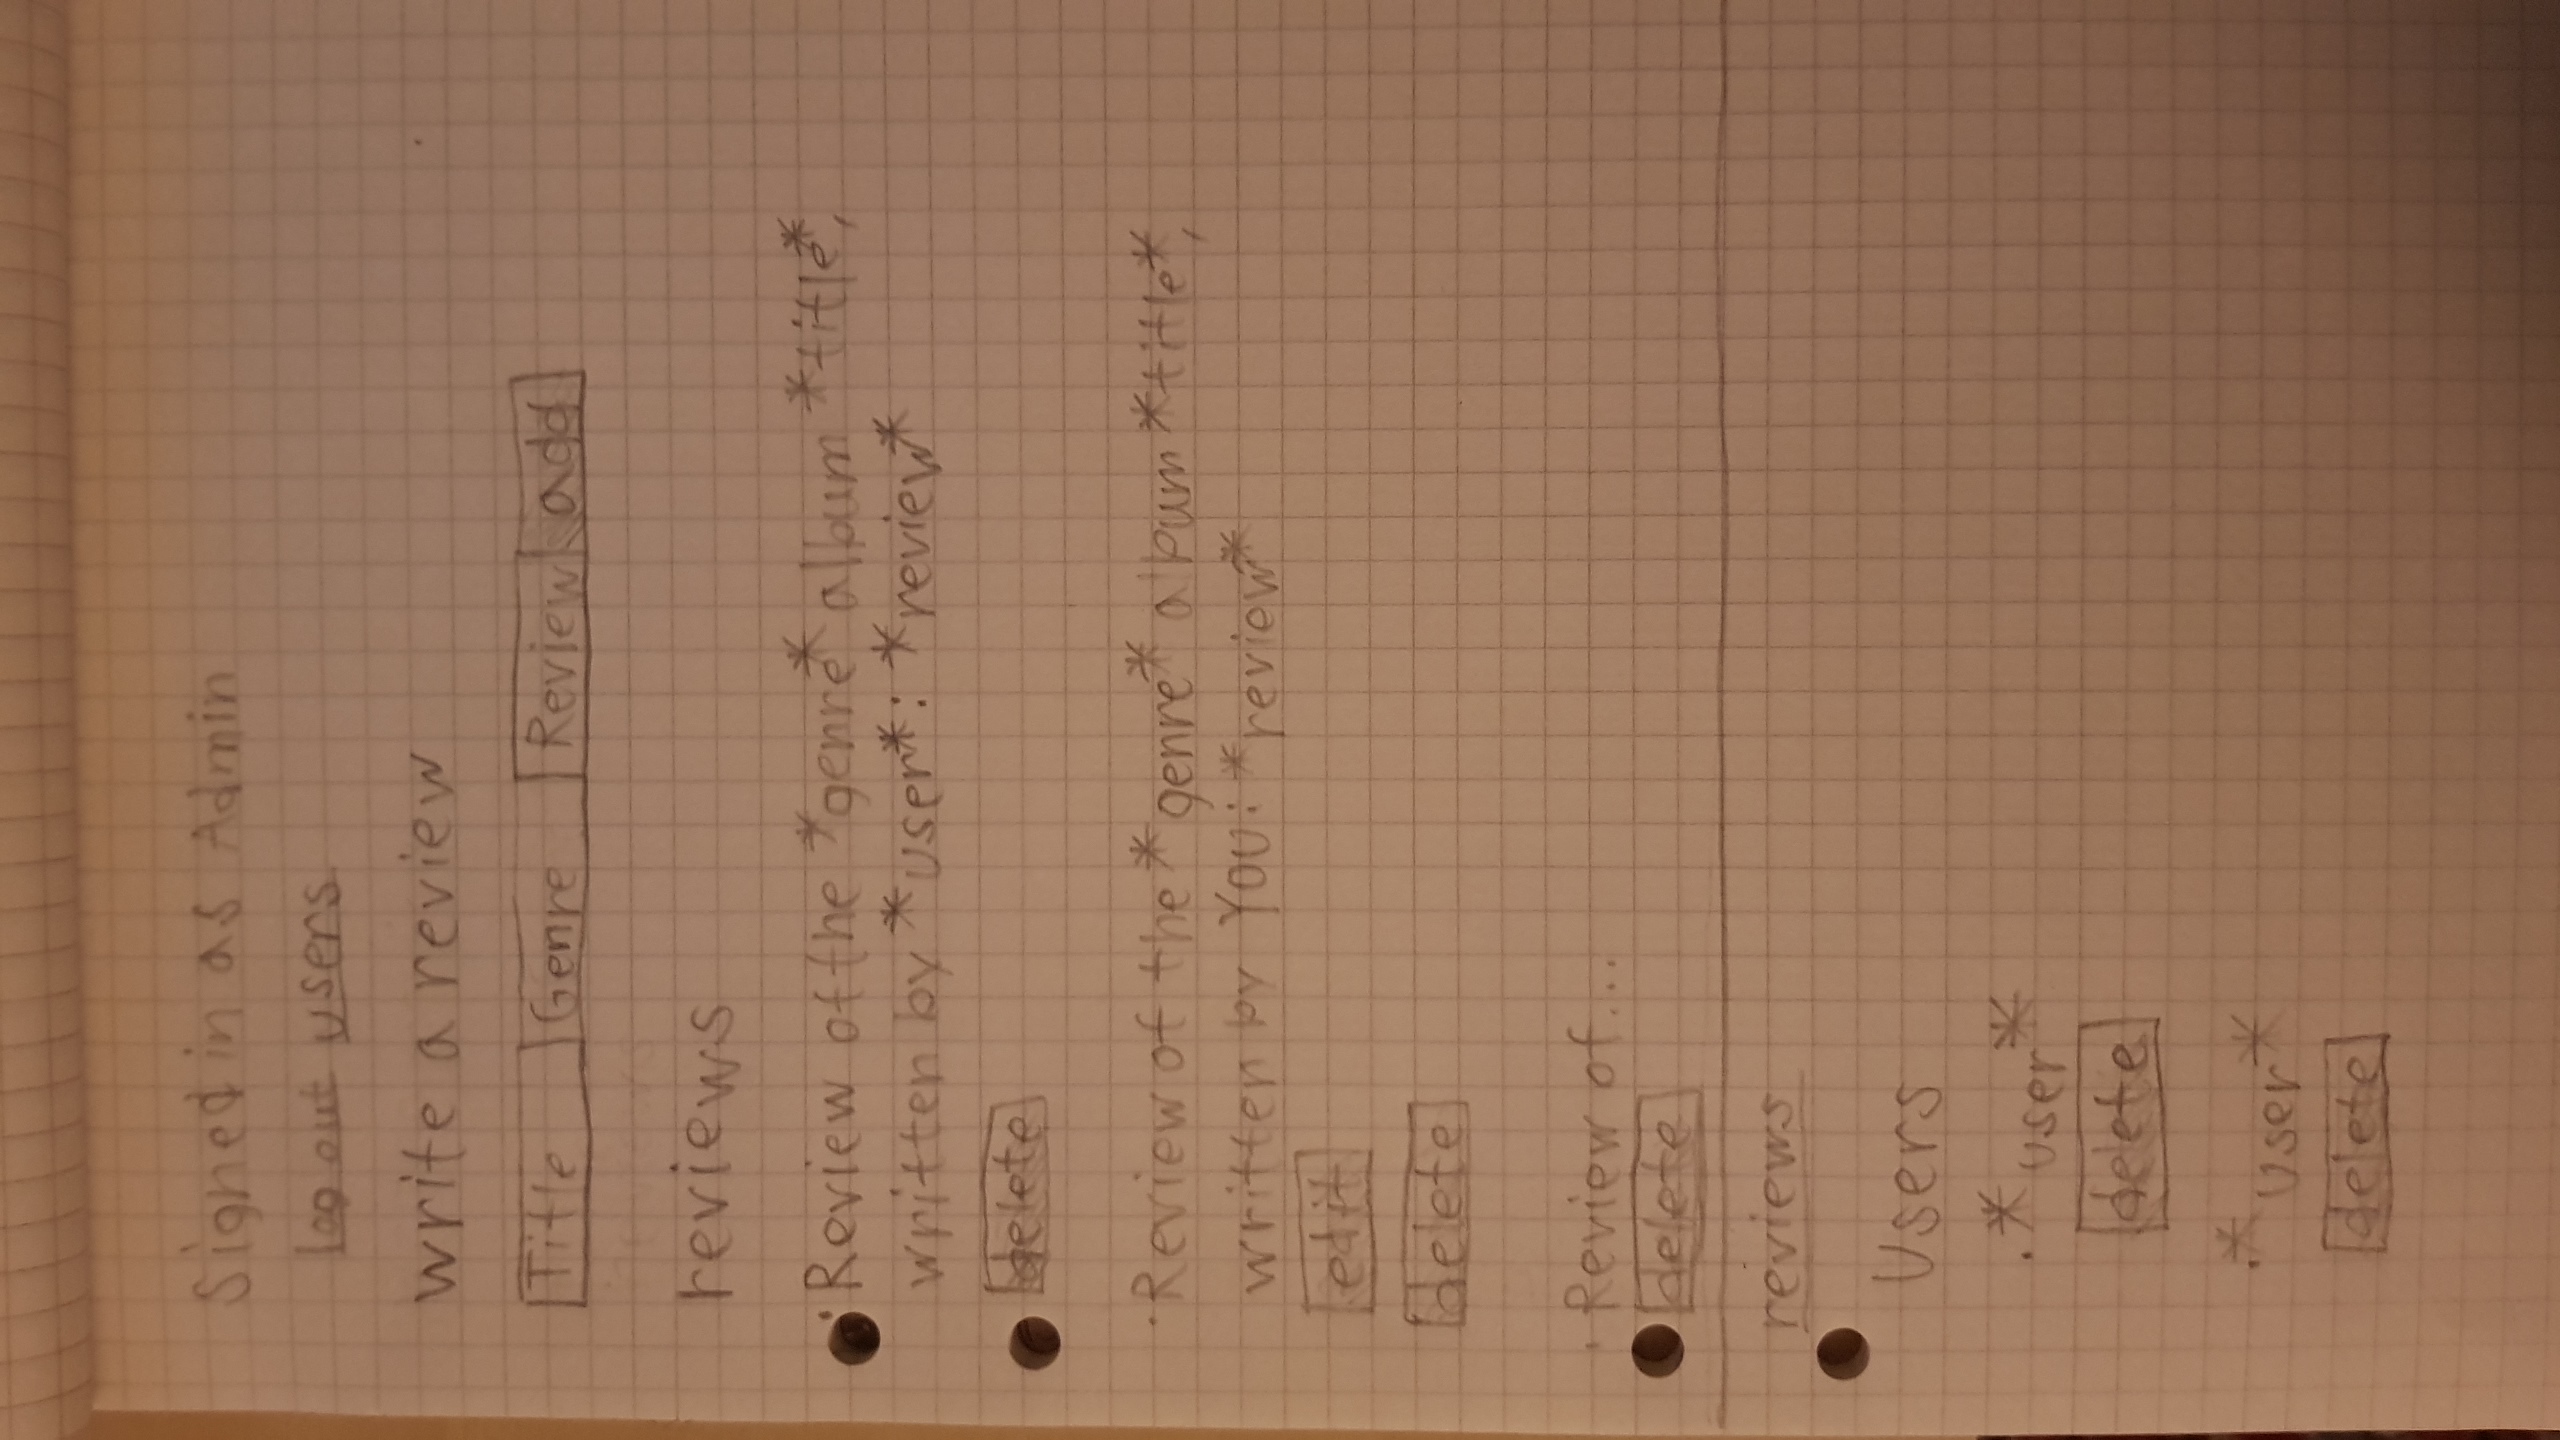 Signed in as Admin
log out users
write a review
Title Genre Review add
reviews
• Review of the *genre* album *title*,
written by *user*: *review*
delete
• Review of the *genre* album *title*,
written by YOU: *review*
edit
delete
• Review of...
delete
reviews
Users
• *user*
delete
• *user*
delete